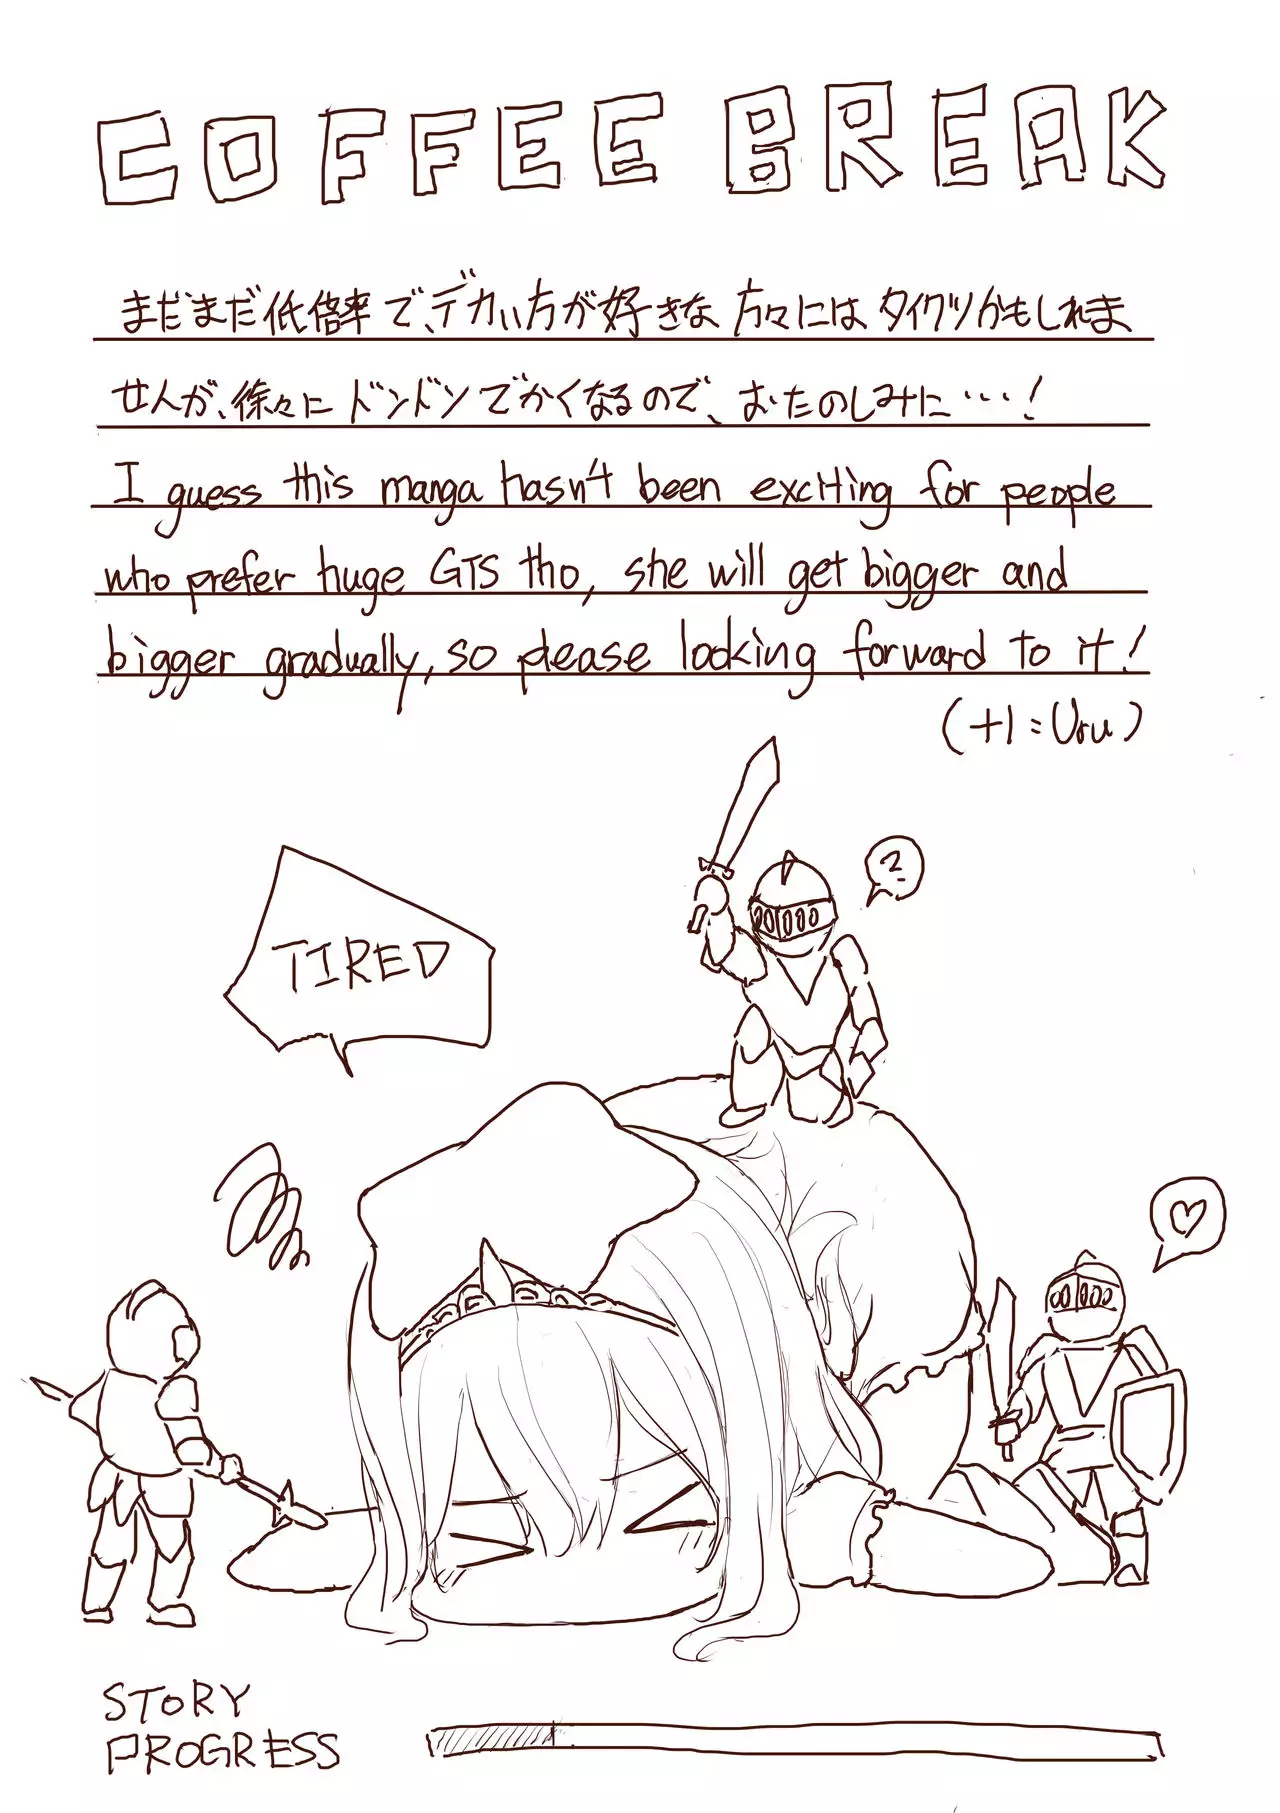 COFFEE BREAK
まだまだ低倍率で、デカい方が好きな方々にはタイクツかもしれま
せんが、徐々にドンドンでかくなるので、おたのしみに…!
I guess this manga hasn't been exciting for people
who prefer huge GTS tho, she will get bigger and
bigger gradually, so please looking forward to it!
(+1=Uru)
?
TIRED
STORY
PROGRESS